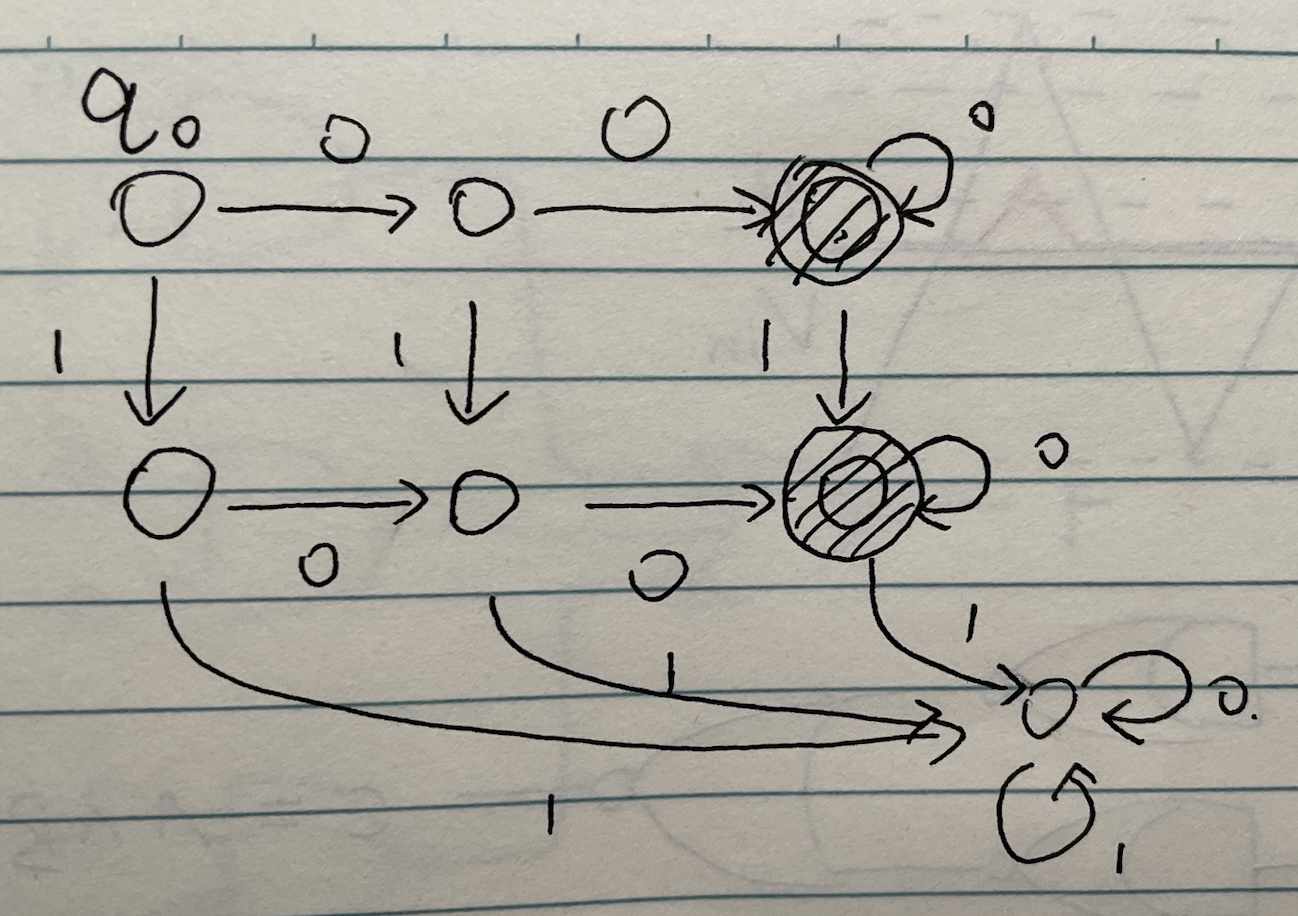 q0 0 0 0
1 1 1
0 0 0
1 1 0.
1 1